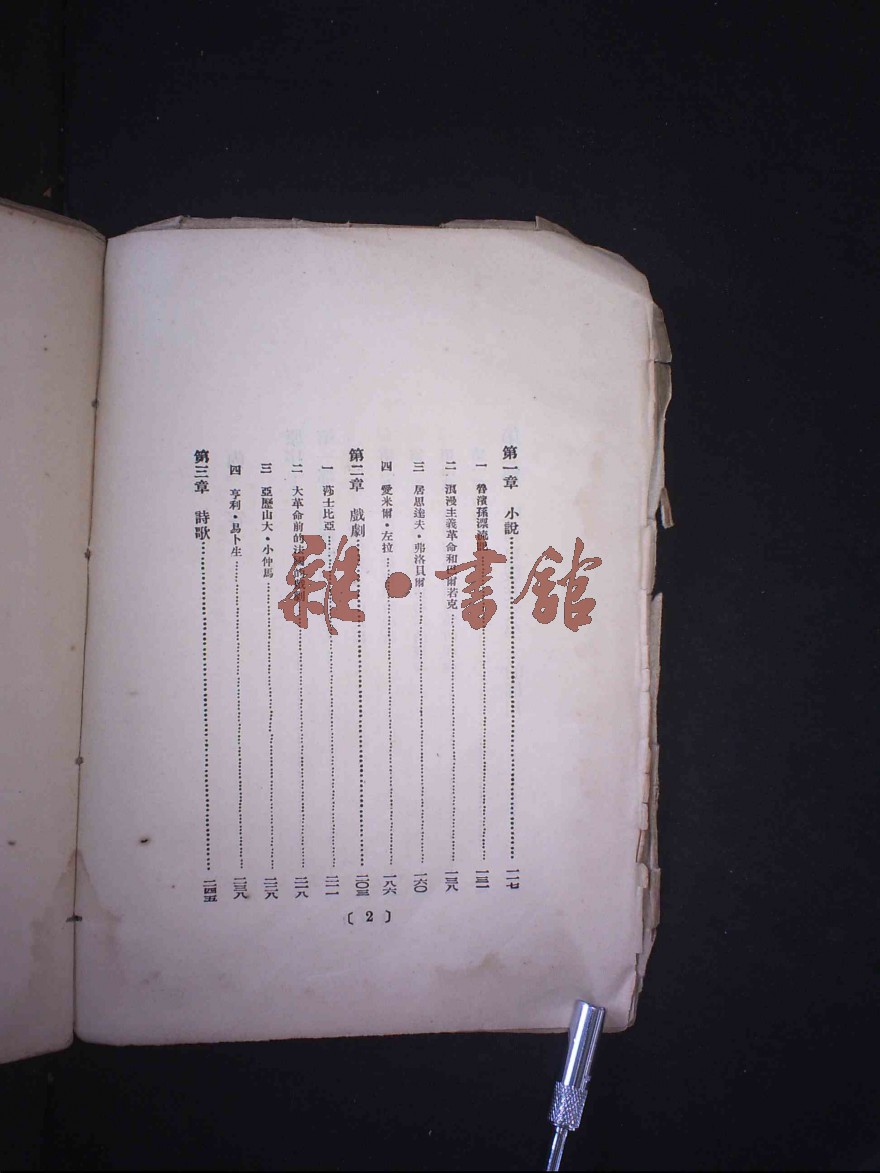 第一章 小說……一一七
一 魯濱孫漂流記……一三一
二 浪漫主義革命和巴爾若克……一三八
三 居思達夫·弗洛貝爾……一六〇
四 愛米爾·左拉……一八六
第二章 戲劇……二〇三
一 莎士比亞……二一一
二 大革命前的法國……二一八
三 亞歷山大·小仲馬……二二八
四 亨利·易卜生……二三八
第三章 詩歌……二四五
〔2〕
雜·書館